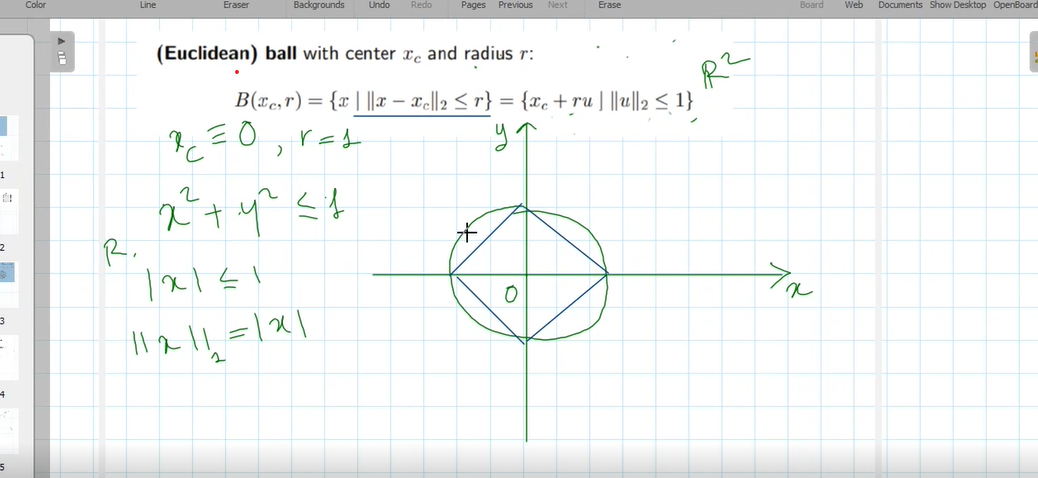 Color Line Eraser Backgrounds Undo Redo Pages Previous Next Erase Board Web Documents Show Desktop OpenBoard
(Euclidean) ball with center x_c and radius r:
B(x_c, r) = {x | ‖x − x_c‖₂ ≤ r} = {x_c + ru | ‖u‖₂ ≤ 1}
ℝ²
x_c ≡ 0, r = 1
y
x² + y² ≤ 1
R.
|x| ≤ 1
0
x
||x||₂ = |x|
1
2
3
4
5